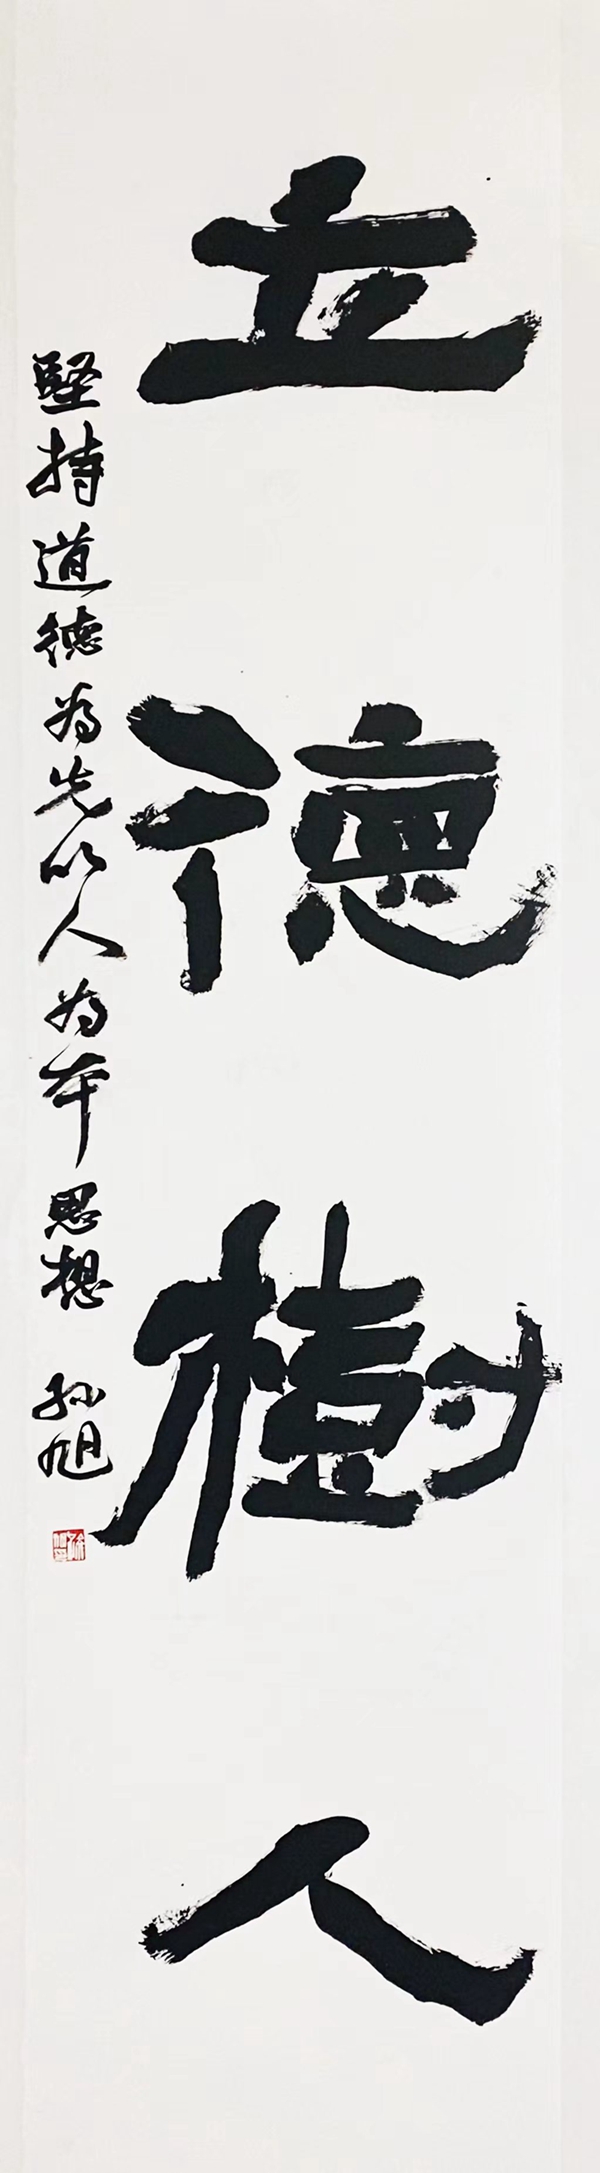 立德樹人
堅持道德為先以人為本思想 孙旭